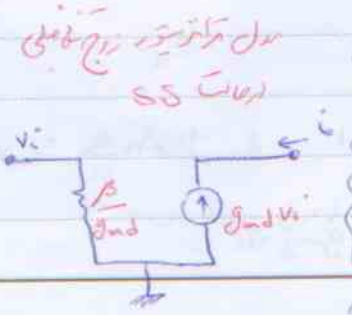 مدل ترانزیستور زوج تفاضلی
درحالت SS
Vi
i
β
gmd
gmd Vi